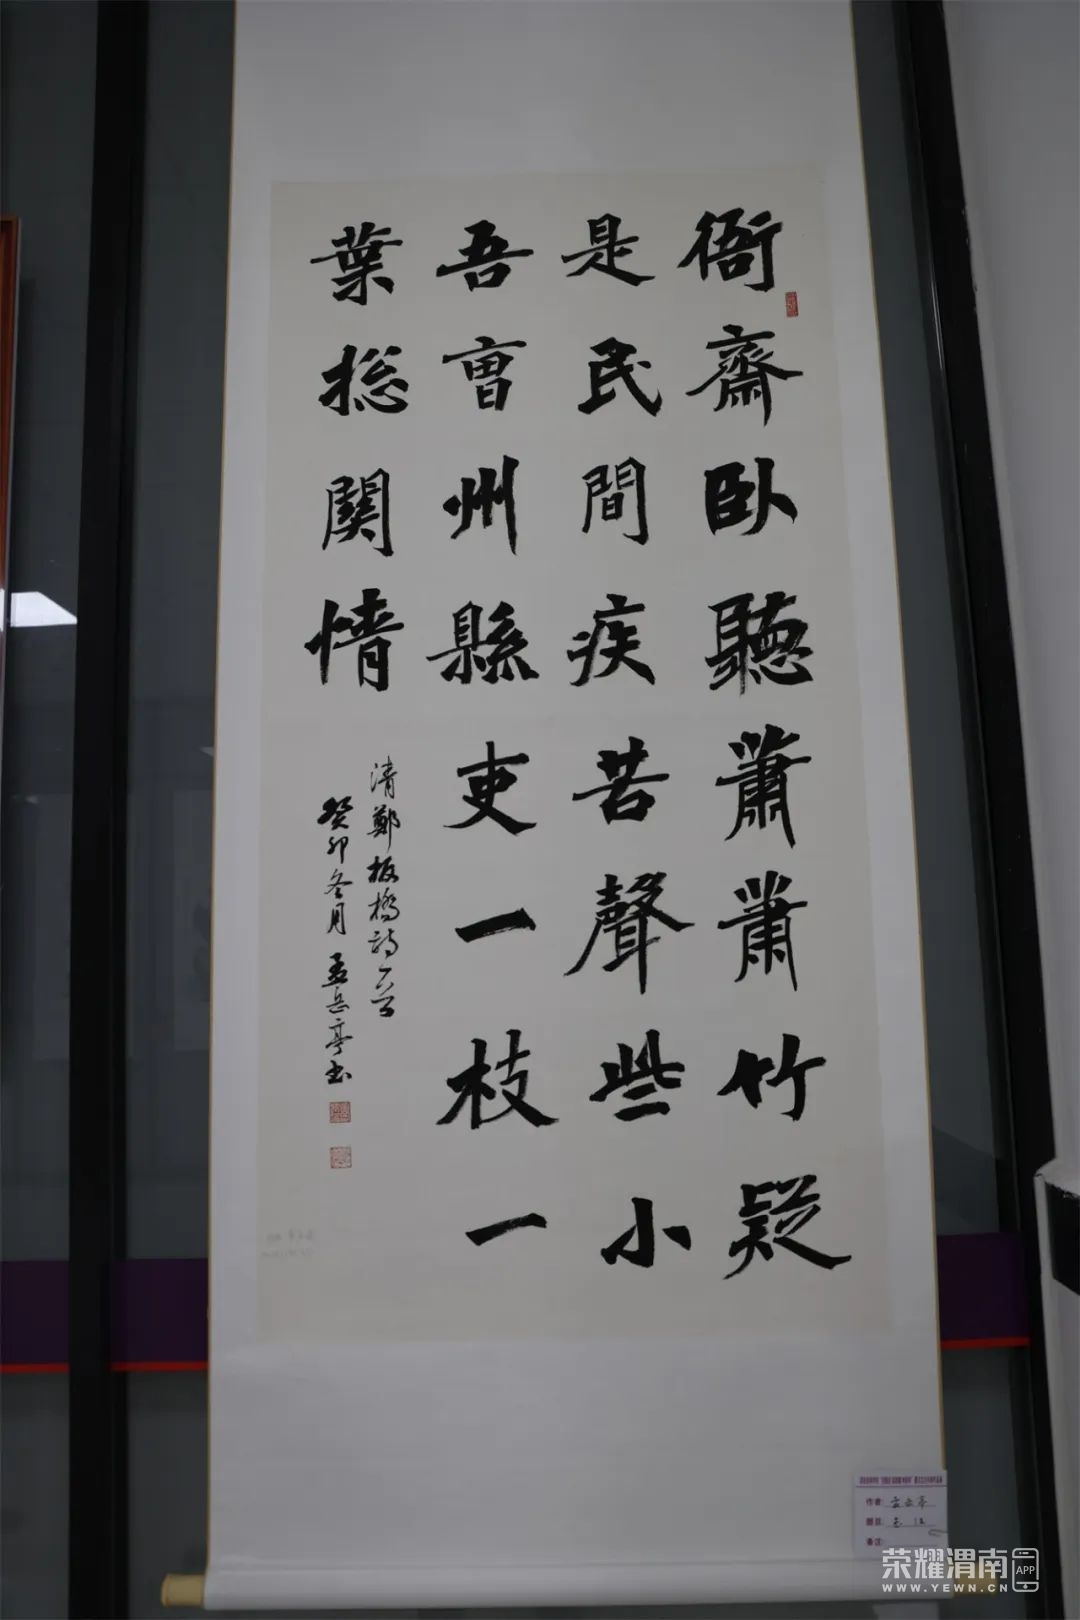 衙齋臥聽蕭蕭竹疑
是民間疾苦聲些小
吾曹州縣吏一枝一
葉總關情
清鄭板橋詩一首
癸卯冬月孟岳亭書
作者: 孟岳亭
題目:
备注:
荣耀渭南APP
WWW.YEWN.CN